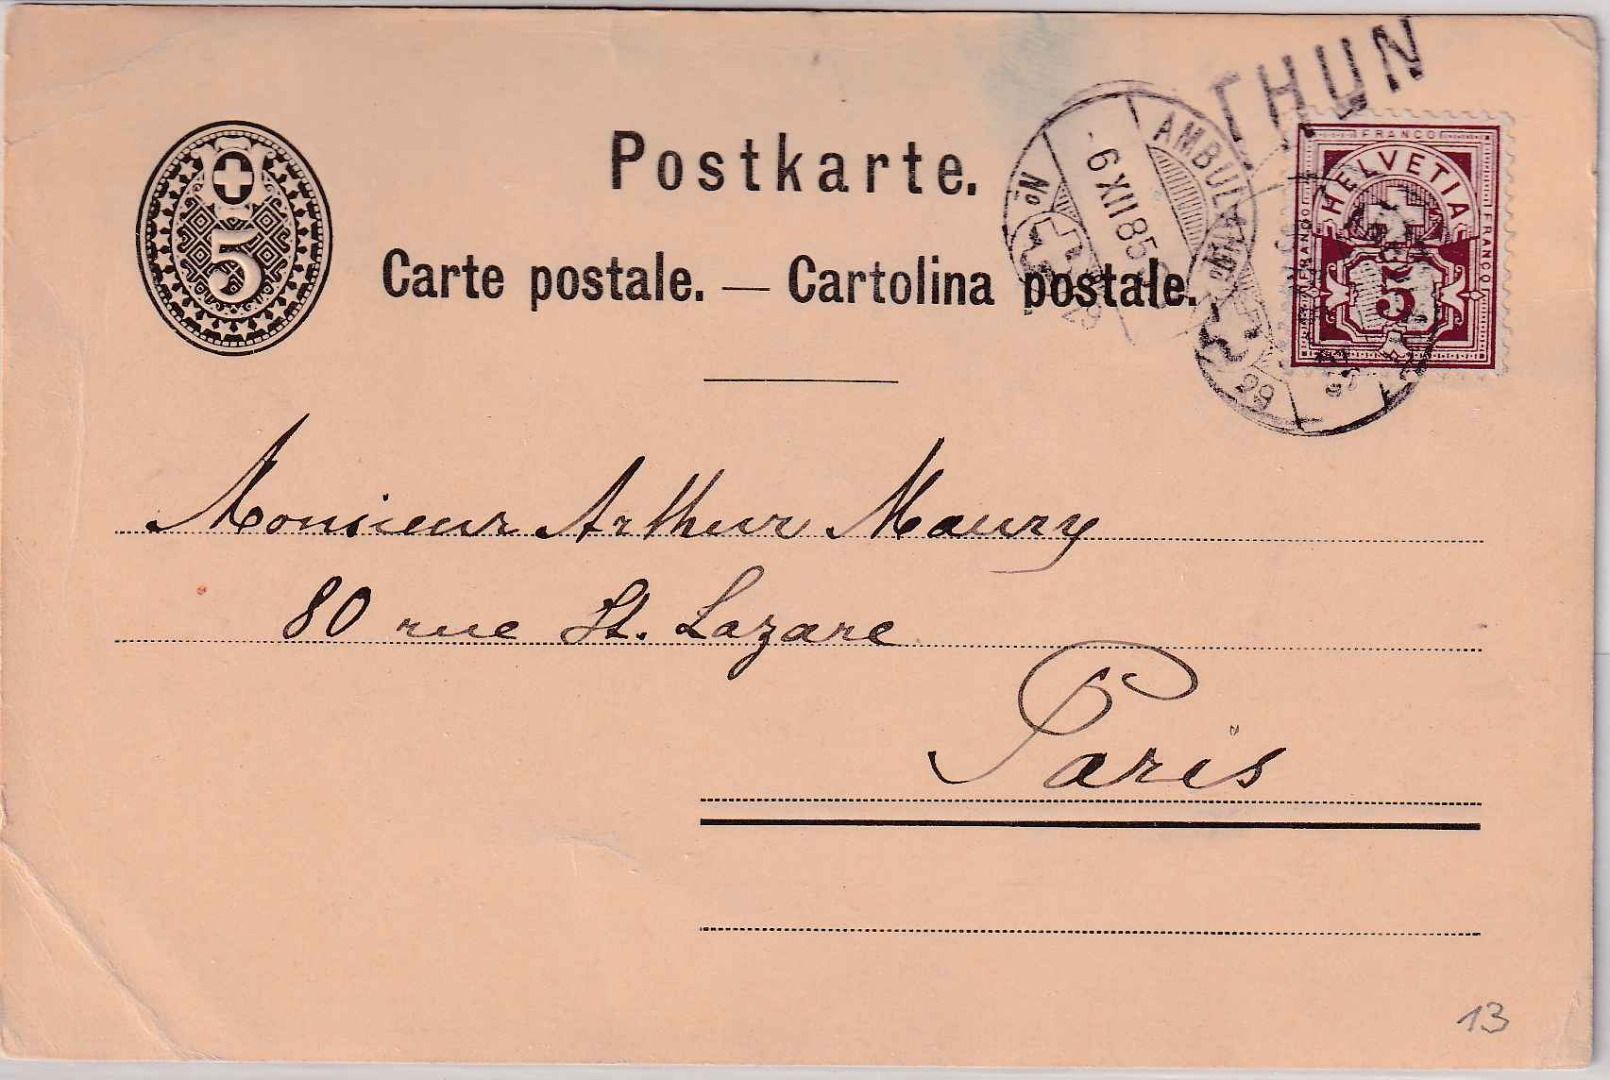 THUN
5
Postkarte.
Carte postale. — Cartolina postale.
AMBULANT
No
29
-6 XII 85
FRANCO
HELVETIA
FRANCO
FRANCO
5
No
29
Monsieur Arthur Maury
80 rue St. Lazare
Paris
13